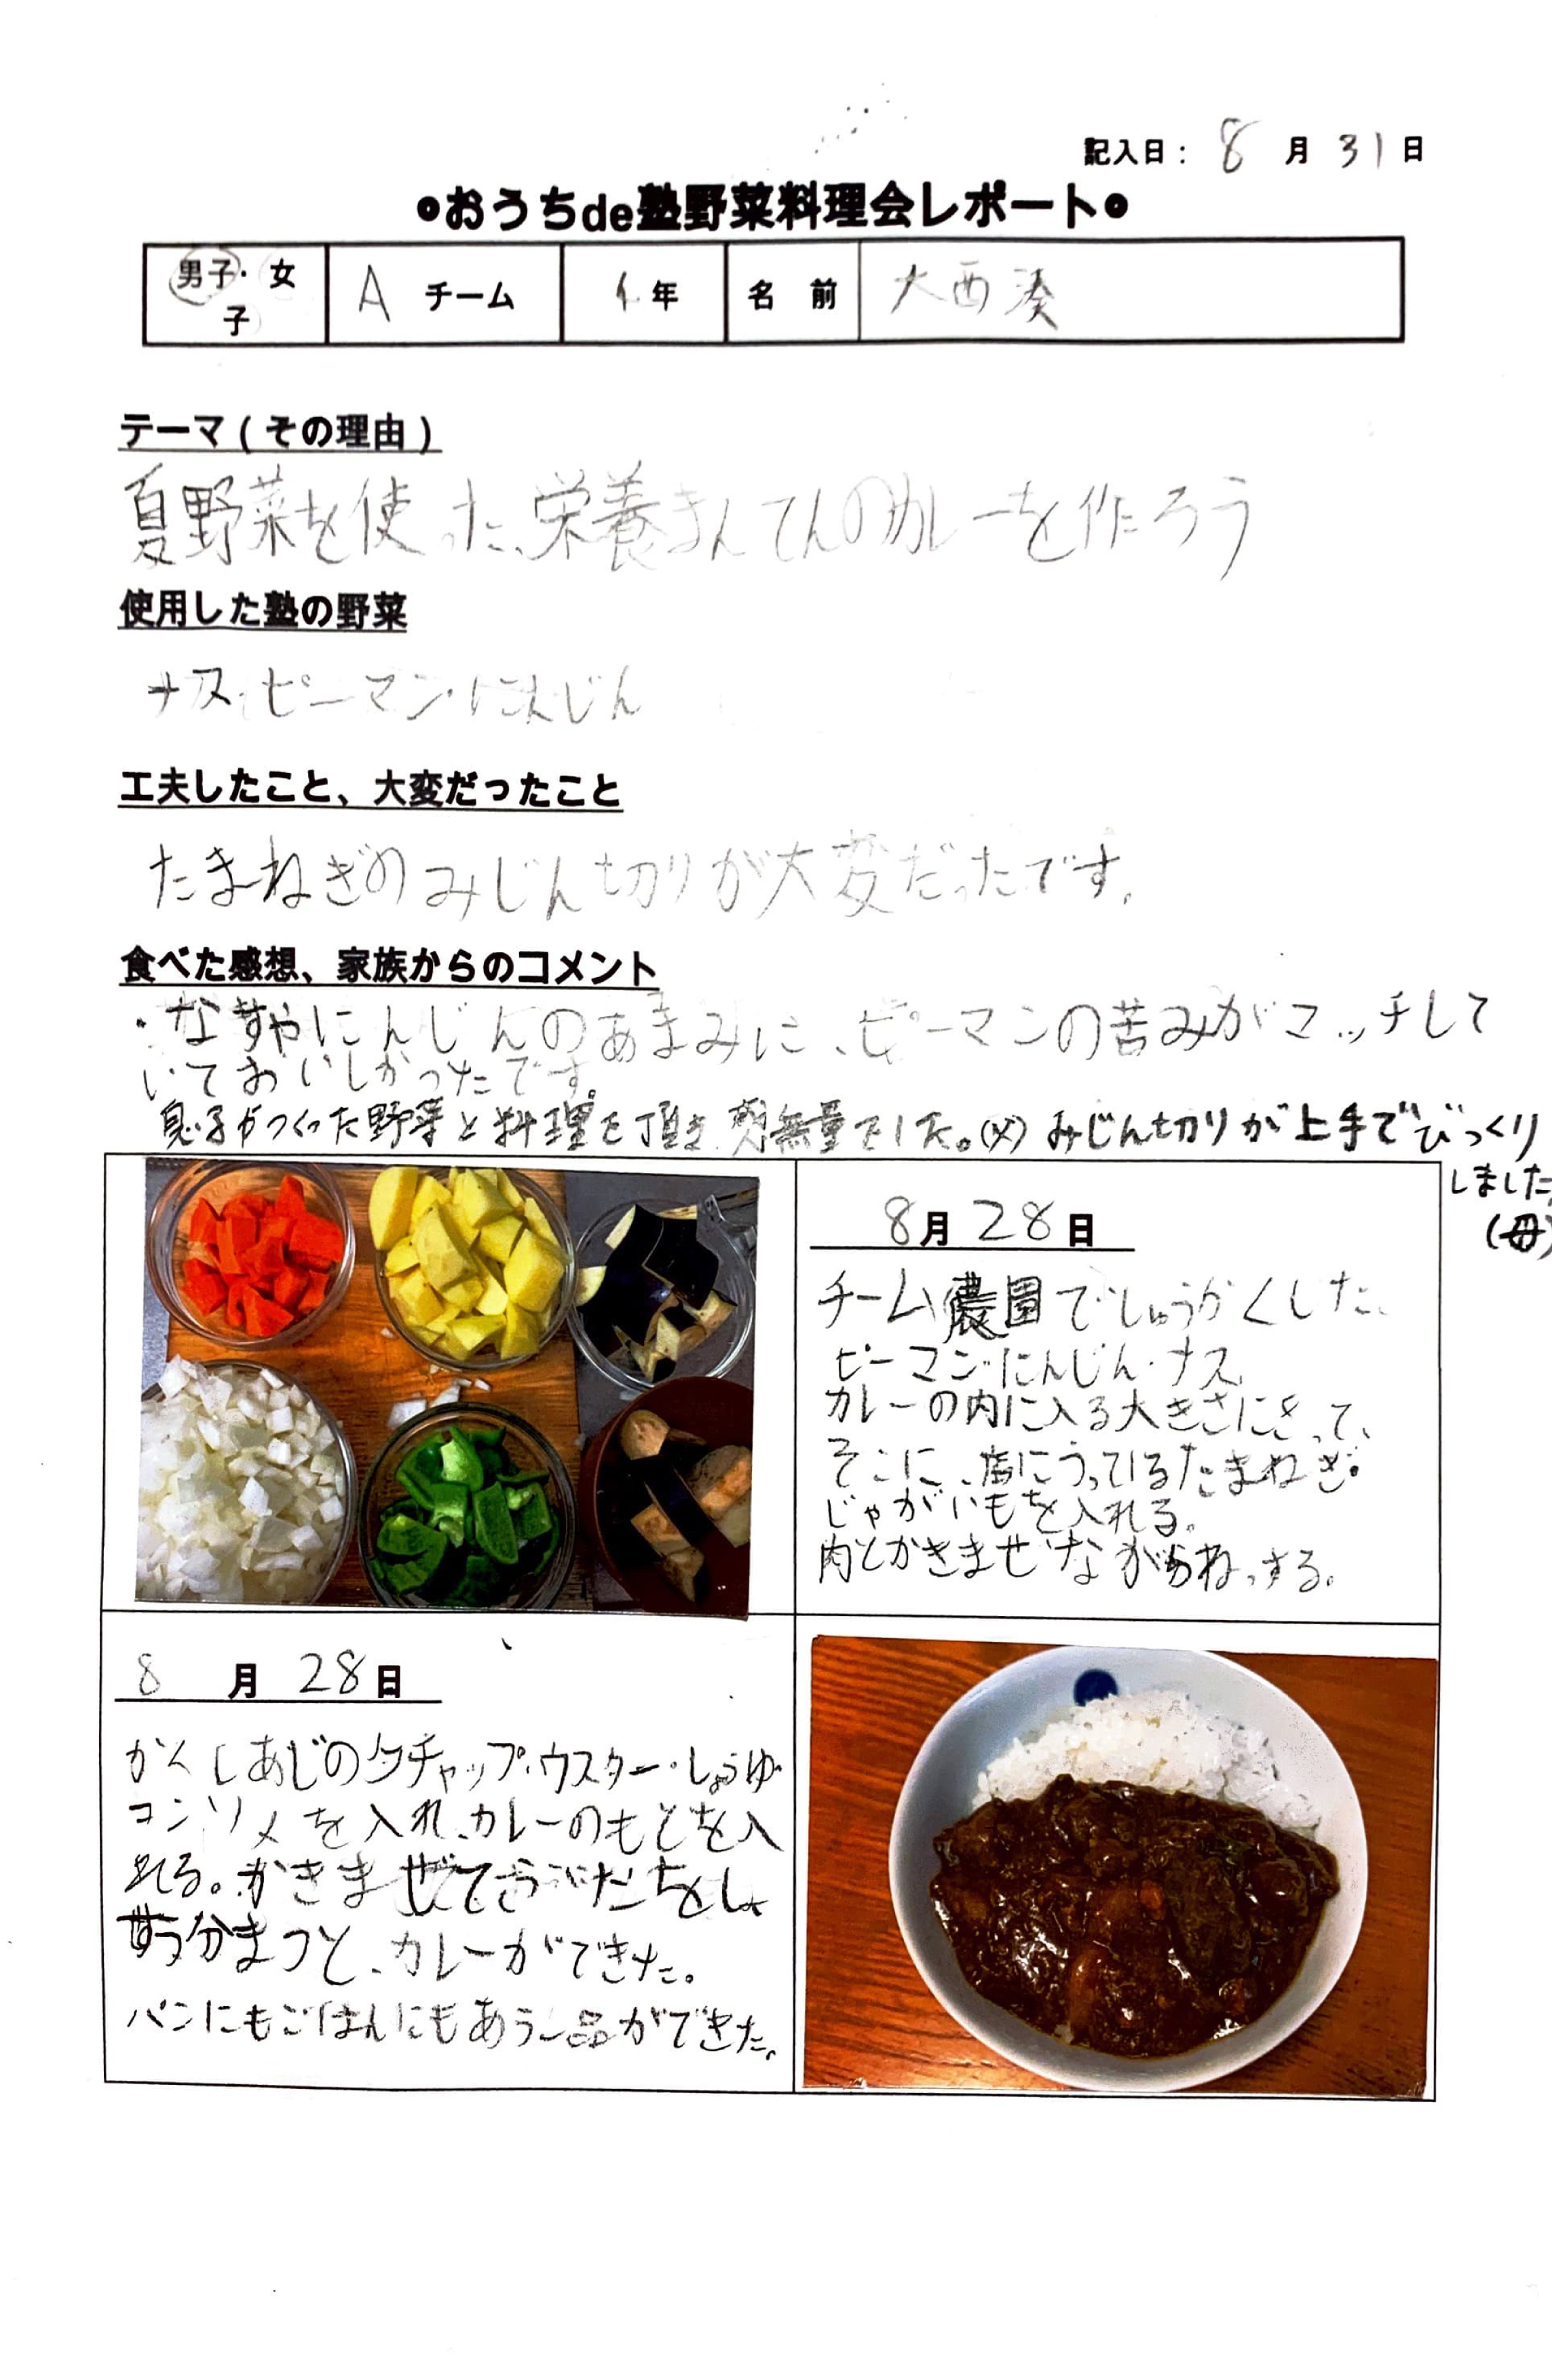 記入日： 8 月 31 日
●おうちde塾野菜料理会レポート●
男子・女子 A チーム 年 名 前 大西湊
テーマ（その理由）
夏野菜を使った、栄養まんてんのカレーを作ろう
使用した塾の野菜
ナス・ピーマン・にんじん
工夫したこと、大変だったこと
たまねぎのみじん切りが大変だったです。
食べた感想、家族からのコメント
・なすやにんじんのあまみに、ピーマンの苦みがマッチして
いておいしかったです。
息子がつくった野菜と料理を頂き、感無量でした。(父) みじん切りが上手でびっくり
しました。
(母)
8月 28 日
チーム農園でしゅうかくした、
ピーマン・にんじん・ナス
カレーの内に入る大きさにきって、
そこに、店にうっているたまねぎ・
じゃがいもを入れる。
肉とかきまぜながらねっする。
8 月 28 日
かくしあじのケチャップ・ウスター・しょうゆ・
コンソメを入れ、カレーのもとを入
れる。かきまぜて
分まつと、カレーができた。
パンにもごはんにもあう一品ができた。